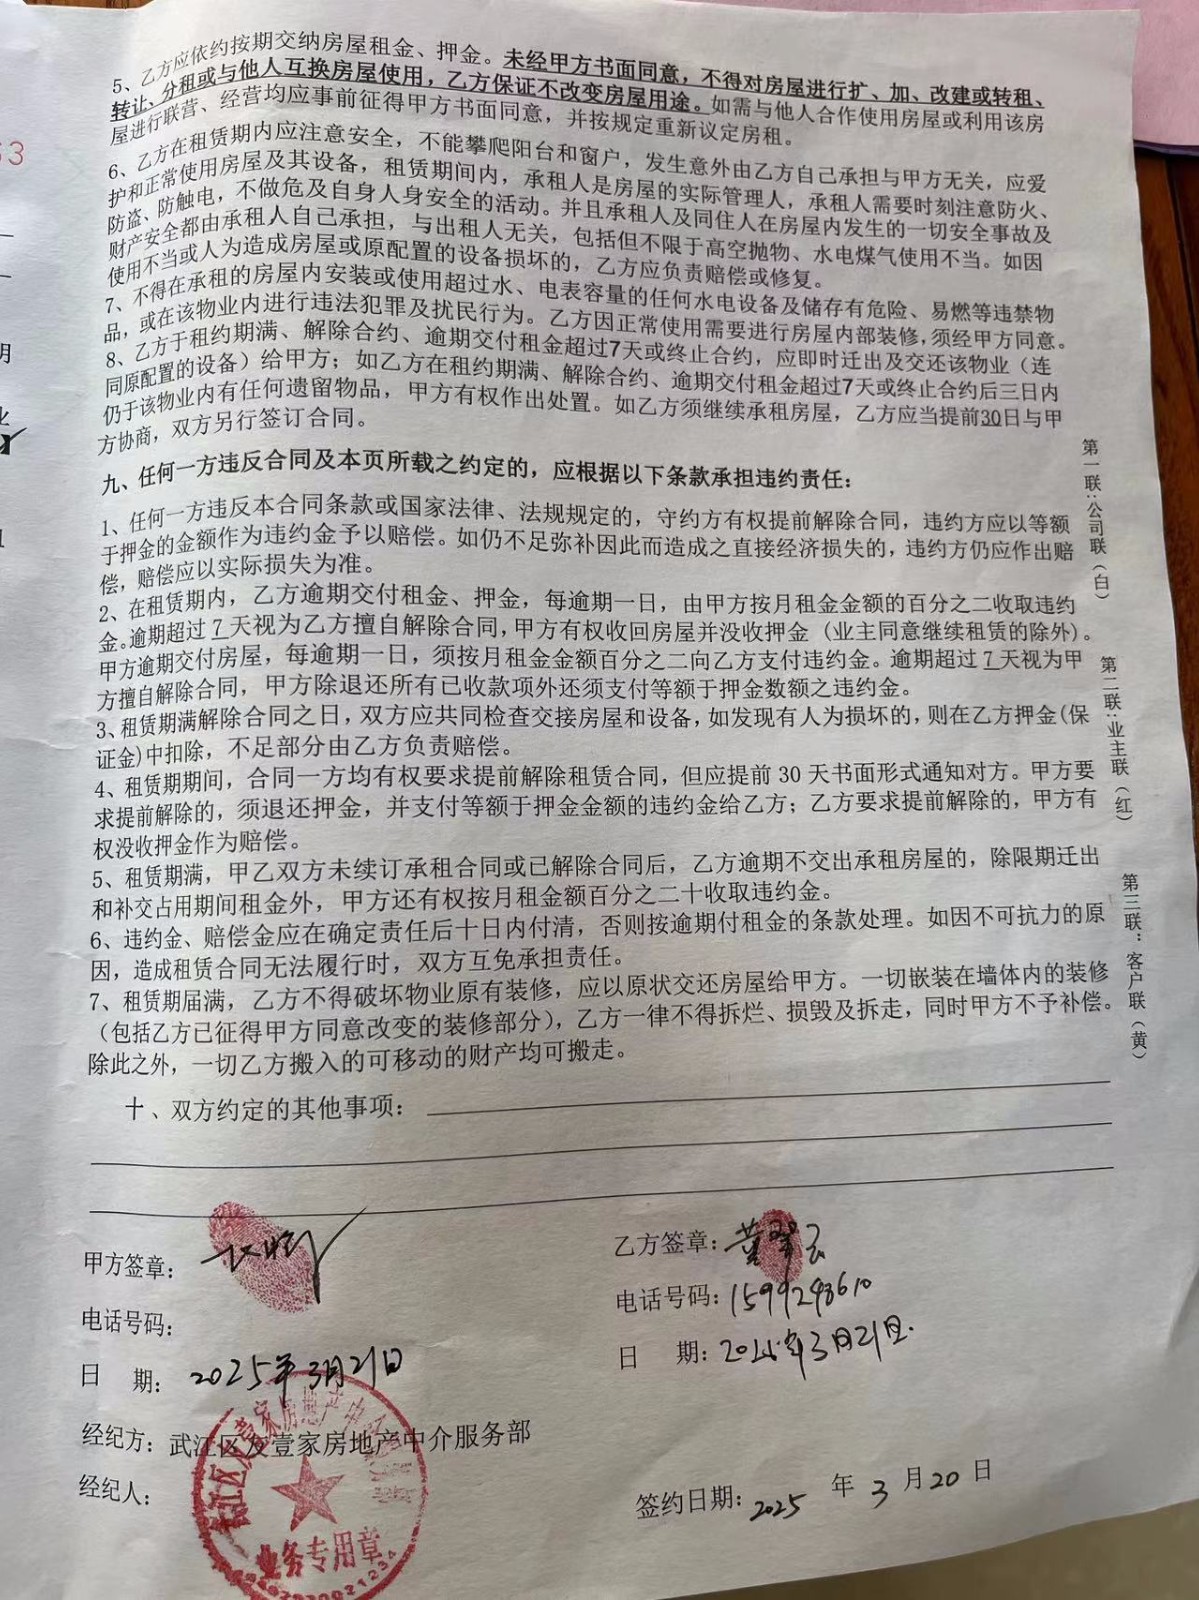 5、乙方应依约按期交纳房屋租金、押金。未经甲方书面同意，不得对房屋进行扩、加、改建或转租、
转让、分租或与他人互换房屋使用，乙方保证不改变房屋用途。如需与他人合作使用房屋或利用该房
屋进行联营、经营均应事前征得甲方书面同意，并按规定重新议定房租。
6、乙方在租赁期内应注意安全，不能攀爬阳台和窗户，发生意外由乙方自己承担与甲方无关，应爱
护和正常使用房屋及其设备，租赁期间内，承租人是房屋的实际管理人，承租人需要时刻注意防火、
防盗、防触电，不做危及自身人身安全的活动。并且承租人及同住人在房屋内发生的一切安全事故及
财产安全都由承租人自己承担，与出租人无关，包括但不限于高空抛物、水电煤气使用不当。如因
使用不当或人为造成房屋或原配置的设备损坏的，乙方应负责赔偿或修复。
7、不得在承租的房屋内安装或使用超过水、电表容量的任何水电设备及储存有危险、易燃等违禁物
品，或在该物业内进行违法犯罪及扰民行为。乙方因正常使用需要进行房屋内部装修，须经甲方同意。
8、乙方于租约期满、解除合约、逾期交付租金超过7天或终止合约，应即时迁出及交还该物业（连
同原配置的设备）给甲方；如乙方在租约期满、解除合约、逾期交付租金超过7天或终止合约后三日内
仍于该物业内有任何遗留物品，甲方有权作出处置。如乙方须继续承租房屋，乙方应当提前30日与甲
方协商，双方另行签订合同。
九、任何一方违反合同及本页所载之约定的，应根据以下条款承担违约责任：
1、任何一方违反本合同条款或国家法律、法规规定的，守约方有权提前解除合同，违约方应以等额
于押金的金额作为违约金予以赔偿。如仍不足弥补因此而造成之直接经济损失的，违约方仍应作出赔
偿，赔偿应以实际损失为准。
2、在租赁期内，乙方逾期交付租金、押金，每逾期一日，由甲方按月租金金额的百分之二收取违约
金。逾期超过 7 天视为乙方擅自解除合同，甲方有权收回房屋并没收押金（业主同意继续租赁的除外）。
甲方逾期交付房屋，每逾期一日，须按月租金金额百分之二向乙方支付违约金。逾期超过 7 天视为甲
方擅自解除合同，甲方除退还所有已收款项外还须支付等额于押金数额之违约金。
3、租赁期满解除合同之日，双方应共同检查交接房屋和设备，如发现有人为损坏的，则在乙方押金（保
证金）中扣除，不足部分由乙方负责赔偿。
4、租赁期期间，合同一方均有权要求提前解除租赁合同，但应提前 30 天书面形式通知对方。甲方要
求提前解除的，须退还押金，并支付等额于押金金额的违约金给乙方；乙方要求提前解除的，甲方有
权没收押金作为赔偿。
5、租赁期满，甲乙双方未续订承租合同或已解除合同后，乙方逾期不交出承租房屋的，除限期迁出
和补交占用期间租金外，甲方还有权按月租金额百分之二十收取违约金。
6、违约金、赔偿金应在确定责任后十日内付清，否则按逾期付租金的条款处理。如因不可抗力的原
因，造成租赁合同无法履行时，双方互免承担责任。
7、租赁期届满，乙方不得破坏物业原有装修，应以原状交还房屋给甲方。一切嵌装在墙体内的装修
（包括乙方已征得甲方同意改变的装修部分），乙方一律不得拆烂、损毁及拆走，同时甲方不予补偿。
除此之外，一切乙方搬入的可移动的财产均可搬走。
十、双方约定的其他事项：
第一联：公司联（白）
第二联：业主联（红）
第三联：客户联（黄）
甲方签章：
电话号码：
日 期：2025年3月21日
经纪方：武江区及壹家房地产中介服务部
经纪人：
业务专用章
乙方签章：黄翠云
电话号码：15992493610
日 期：2025年3月21日.
签约日期：2025 年 3 月 20 日
53